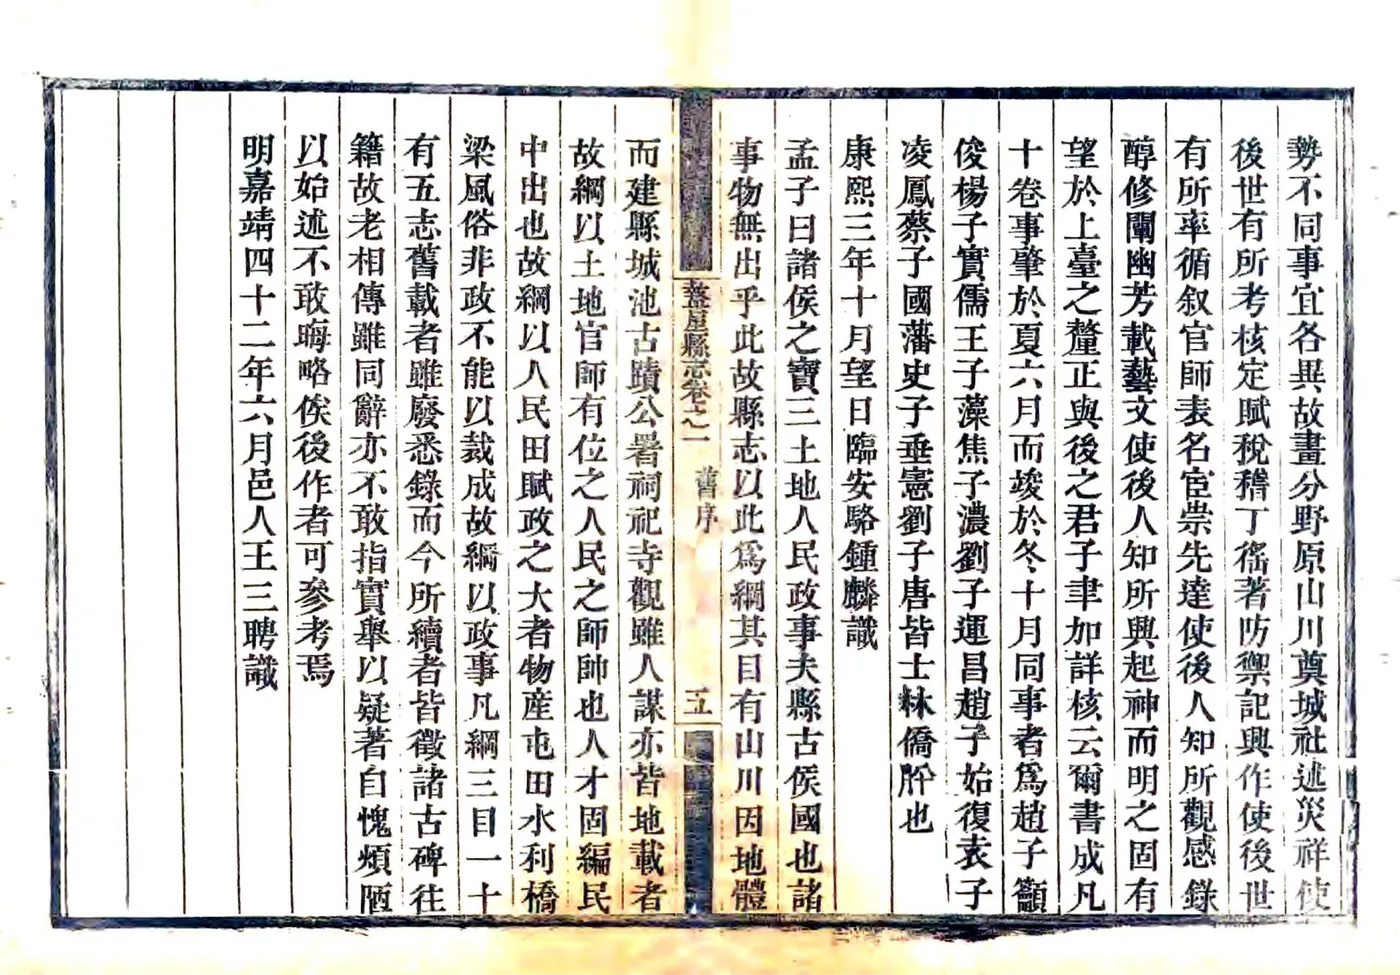 勢不同事宜各異故畫分野原山川奠城社述災祥使
後世有所考核定賦稅稽丁徭著防禦記興作使後世
有所率循叙官師表名宦崇先達使後人知所觀感錄
醇修闡幽芳載藝文使後人知所興起神而明之固有
望於上臺之釐正與後之君子聿加詳核云爾書成凡
十卷事肇於夏六月而竣於冬十月同事者爲趙子籲
俊楊子實儒王子藻焦子濃劉子運昌趙子始復袁子
凌鳳蔡子國藩史子垂憲劉子唐皆士林僑肸也
康熙三年十月望日臨安駱鍾麟識
孟子曰諸侯之寶三土地人民政事夫縣古侯國也諸
事物無出乎此故縣志以此爲綱其目有山川因地體
盩厔縣志卷之一 舊序 五
而建縣城池古蹟公署祠祀寺觀雖人謀亦皆地載者
故綱以土地官師有位之人民之師帥也人才固編民
中出也故綱以人民田賦政之大者物產屯田水利橋
梁風俗非政不能以裁成故綱以政事凡綱三目一十
有五志舊載者雖廢悉錄而今所續者皆徵諸古碑往
籍故老相傳雖同辭亦不敢指實舉以疑著自愧煩陋
以始述不敢晦略俟後作者可參考焉
明嘉靖四十二年六月邑人王三聘識